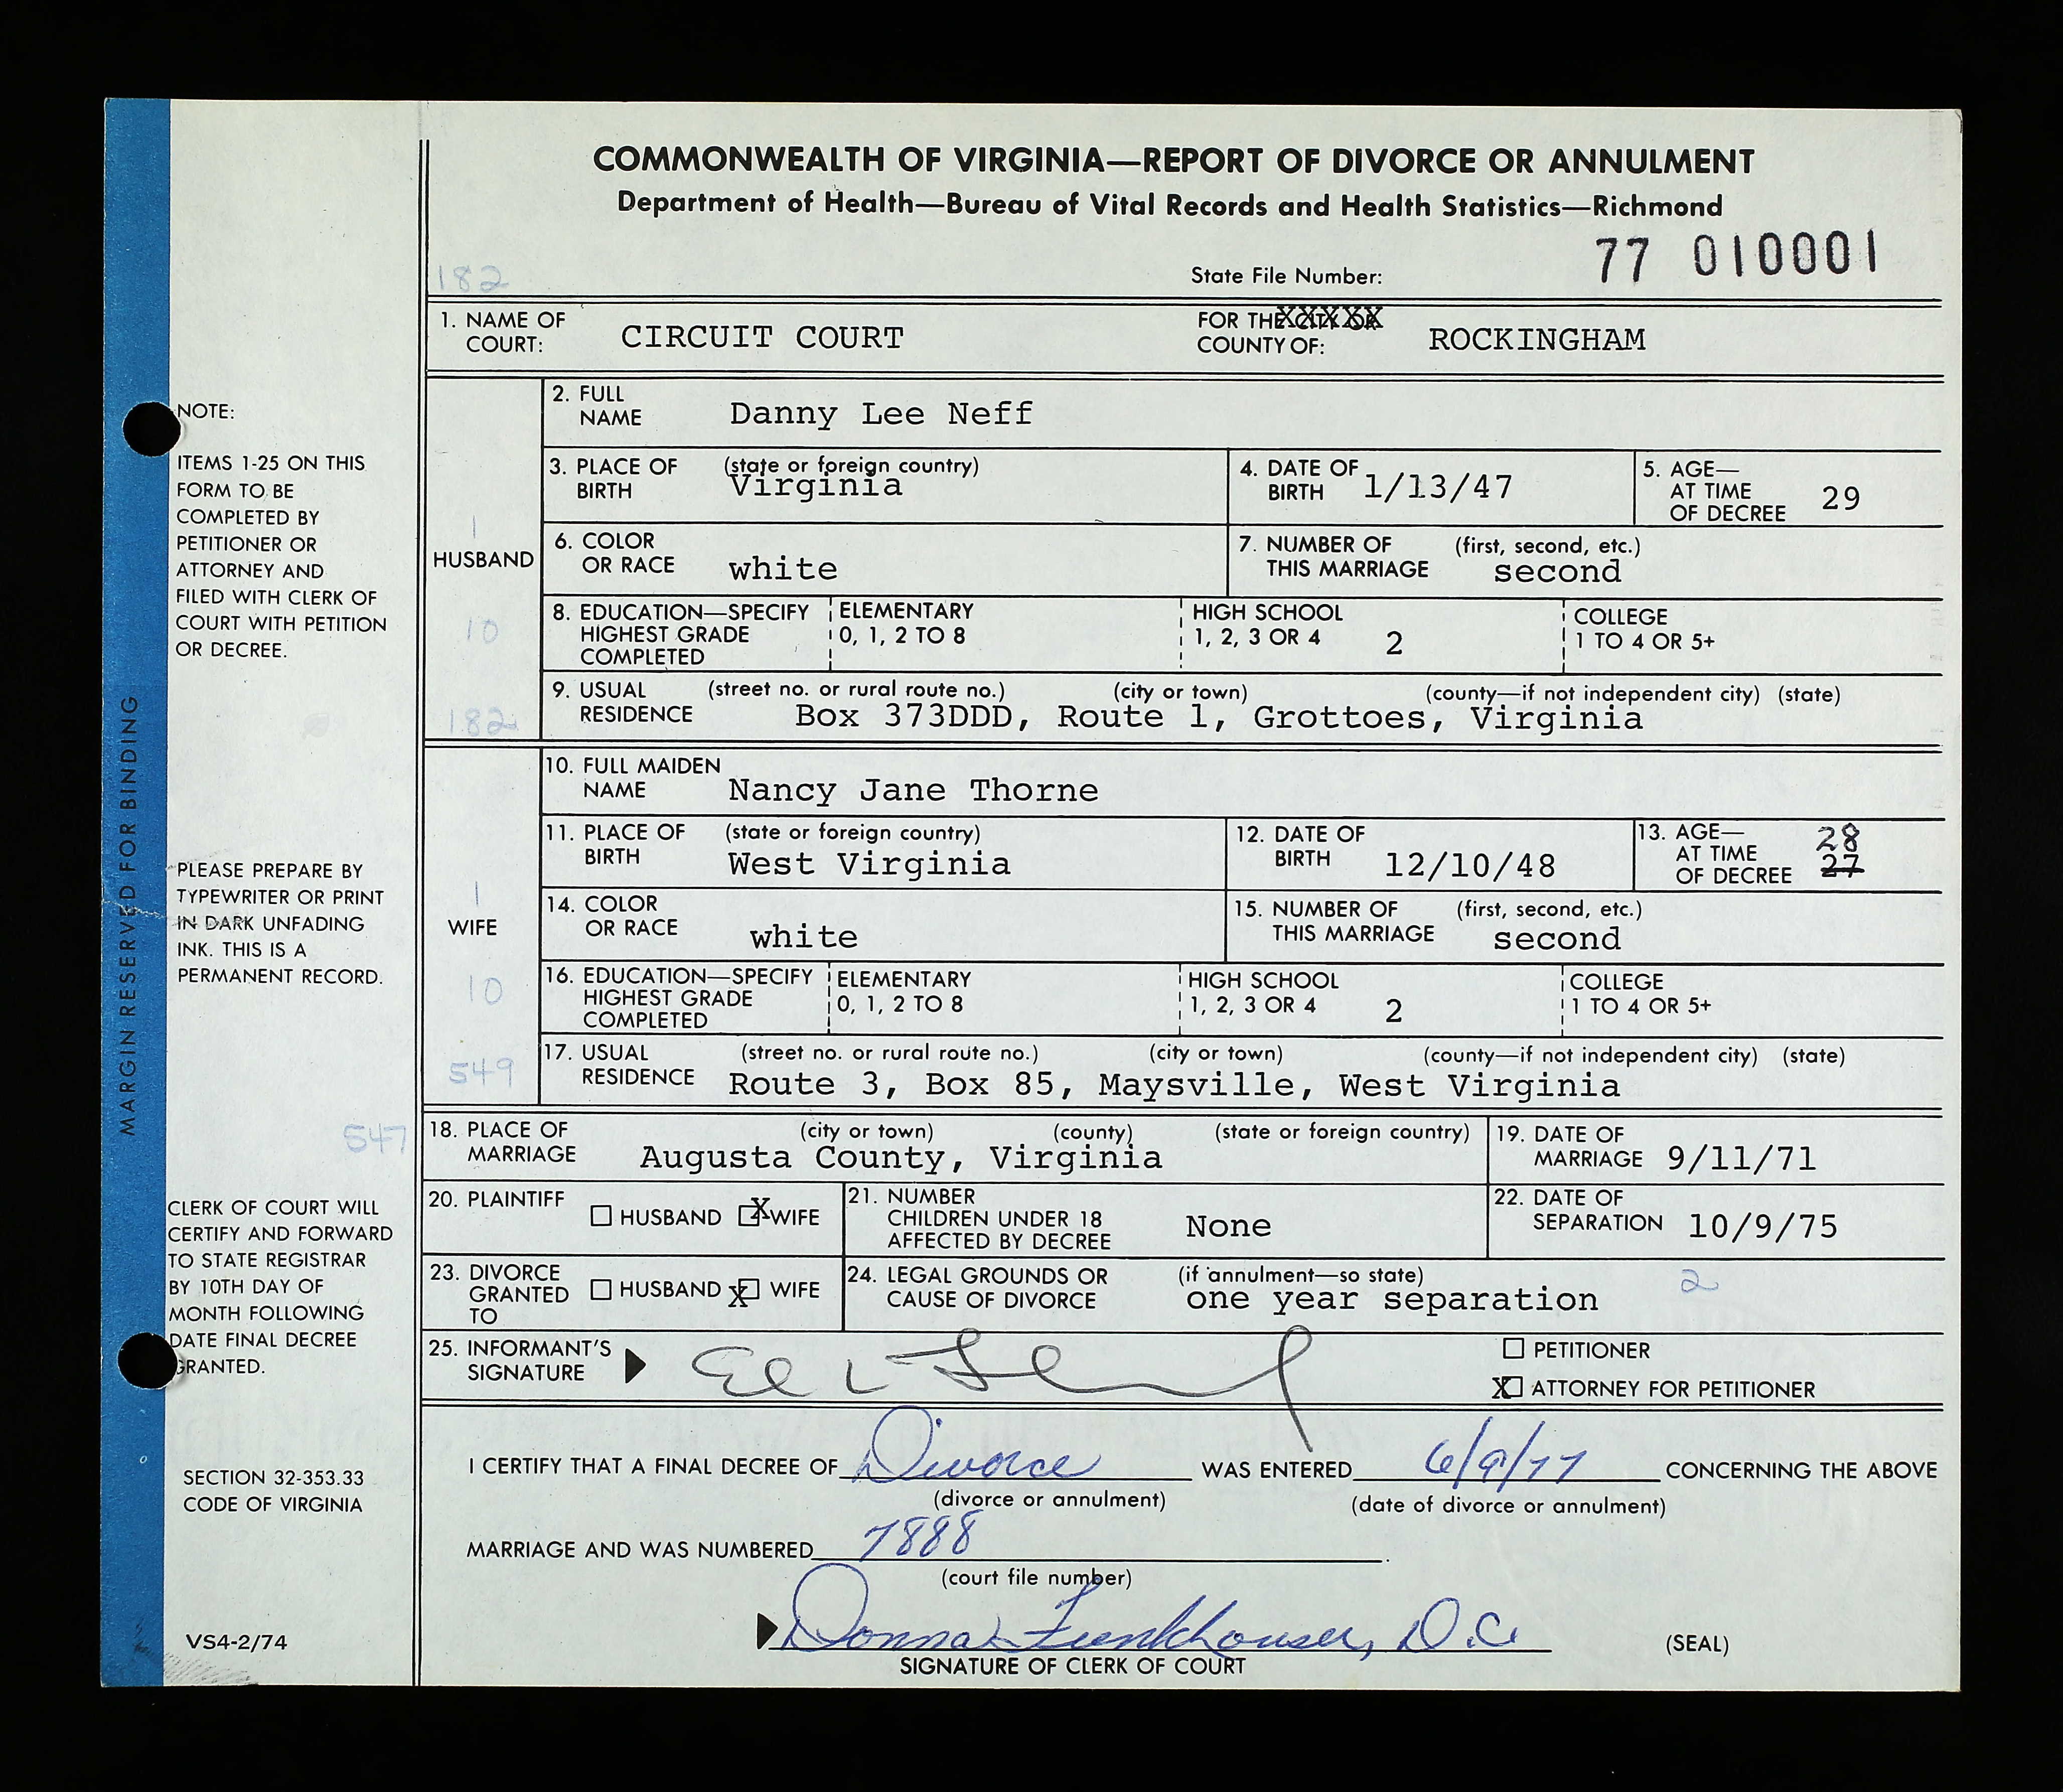 COMMONWEALTH OF VIRGINIA—REPORT OF DIVORCE OR ANNULMENT
Department of Health—Bureau of Vital Records and Health Statistics—Richmond
77 010001
182
State File Number:
1. NAME OF COURT: CIRCUIT COURT FOR THE CITY OR COUNTY OF: ROCKINGHAM
HUSBAND
1
10
182
2. FULL NAME Danny Lee Neff
3. PLACE OF BIRTH (state or foreign country) Virginia 4. DATE OF BIRTH 1/13/47 5. AGE—AT TIME OF DECREE 29
6. COLOR OR RACE white 7. NUMBER OF THIS MARRIAGE (first, second, etc.) second
8. EDUCATION—SPECIFY HIGHEST GRADE COMPLETED ELEMENTARY 0, 1, 2 TO 8 HIGH SCHOOL 1, 2, 3 OR 4 2 COLLEGE 1 TO 4 OR 5+
9. USUAL RESIDENCE (street no. or rural route no.) (city or town) (county—if not independent city) (state)
Box 373DDD, Route 1, Grottoes, Virginia
WIFE
1
10
549
10. FULL MAIDEN NAME Nancy Jane Thorne
11. PLACE OF BIRTH (state or foreign country) West Virginia 12. DATE OF BIRTH 12/10/48 13. AGE—AT TIME OF DECREE 28 27
14. COLOR OR RACE white 15. NUMBER OF THIS MARRIAGE (first, second, etc.) second
16. EDUCATION—SPECIFY HIGHEST GRADE COMPLETED ELEMENTARY 0, 1, 2 TO 8 HIGH SCHOOL 1, 2, 3 OR 4 2 COLLEGE 1 TO 4 OR 5+
17. USUAL RESIDENCE (street no. or rural route no.) (city or town) (county—if not independent city) (state)
Route 3, Box 85, Maysville, West Virginia
547
18. PLACE OF MARRIAGE (city or town) (county) (state or foreign country) Augusta County, Virginia 19. DATE OF MARRIAGE 9/11/71
20. PLAINTIFF HUSBAND X WIFE 21. NUMBER CHILDREN UNDER 18 AFFECTED BY DECREE None 22. DATE OF SEPARATION 10/9/75
23. DIVORCE GRANTED TO HUSBAND X WIFE 24. LEGAL GROUNDS OR CAUSE OF DIVORCE (if annulment—so state) one year separation 2
25. INFORMANT'S SIGNATURE
PETITIONER
X ATTORNEY FOR PETITIONER
I CERTIFY THAT A FINAL DECREE OF Divorce WAS ENTERED 6/9/77 CONCERNING THE ABOVE
(divorce or annulment) (date of divorce or annulment)
MARRIAGE AND WAS NUMBERED 7888
(court file number)
Donna Funkhouser, D.C.
SIGNATURE OF CLERK OF COURT
(SEAL)
MARGIN RESERVED FOR BINDING
NOTE:
ITEMS 1-25 ON THIS
FORM TO BE
COMPLETED BY
PETITIONER OR
ATTORNEY AND
FILED WITH CLERK OF
COURT WITH PETITION
OR DECREE.
PLEASE PREPARE BY
TYPEWRITER OR PRINT
IN DARK UNFADING
INK. THIS IS A
PERMANENT RECORD.
CLERK OF COURT WILL
CERTIFY AND FORWARD
TO STATE REGISTRAR
BY 10TH DAY OF
MONTH FOLLOWING
DATE FINAL DECREE
GRANTED.
SECTION 32-353.33
CODE OF VIRGINIA
VS4-2/74